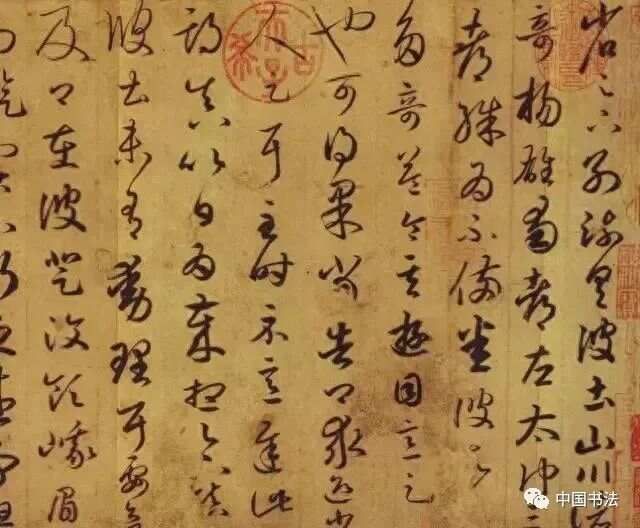 省足下別疏具彼土山川諸
奇揚雄蜀都左太沖三
都殊為不備悉彼故
多奇益令其遊目意足
也可得果當告卿求迎少
人足耳至時示意遲此
期真以日為歲想足下鎮
彼土未有動理耳要欲
及卿在彼登汶領峨眉
古希天子
中国书法